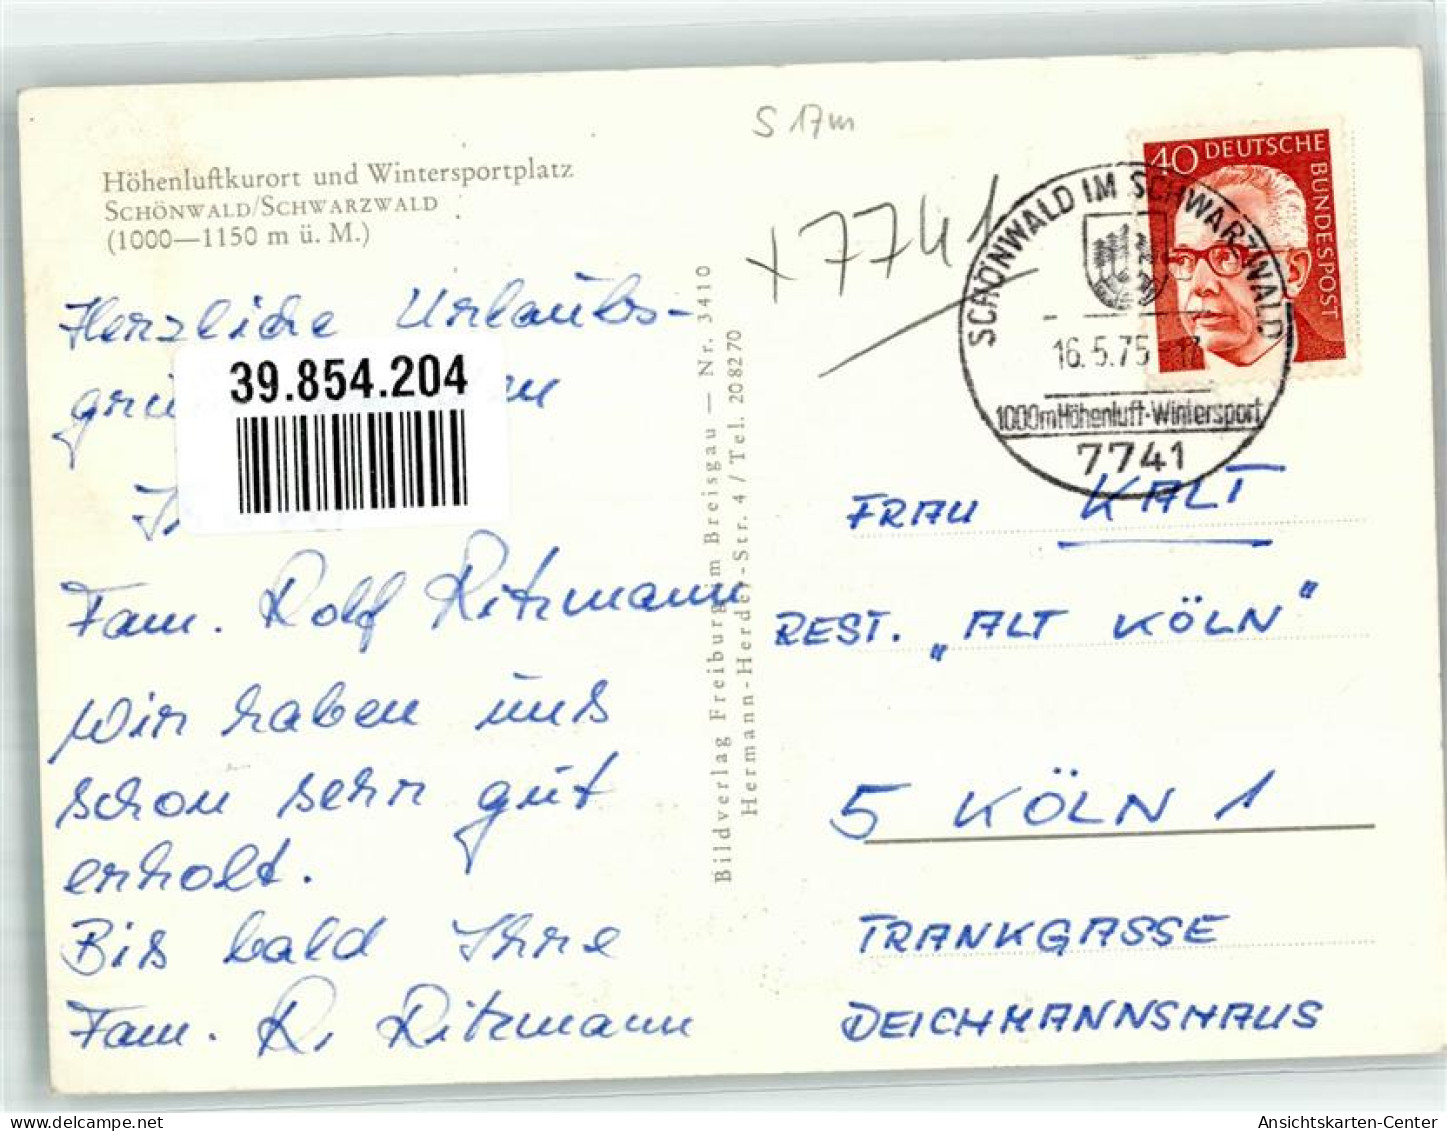 S 17m
Höhenluftkurort und Wintersportplatz
SCHÖNWALD/SCHWARZWALD
(1000—1150 m ü. M.)
Herzliche Urlaubs-
39.854.204
Fam. Rolf Ritzmann
Wir haben uns
schon sehr gut
erholt.
Bis bald Ihre
Fam. R. Ritzmann
Bildverlag Freiburg im Breisgau — Nr. 3410
Hermann-Herder-Str. 4 / Tel. 208270
+7741
40 DEUTSCHE
BUNDESPOST
SCHÖNWALD IM SCHWARZWALD
16.5.75 17
1000m Höhenluft-Wintersport
7741
FRAU KALT
REST. „ALT KÖLN"
5 KÖLN 1
TRANKGASSE
DEICHMANNSHAUS
oldthing.net
Ansichtskarten-Center